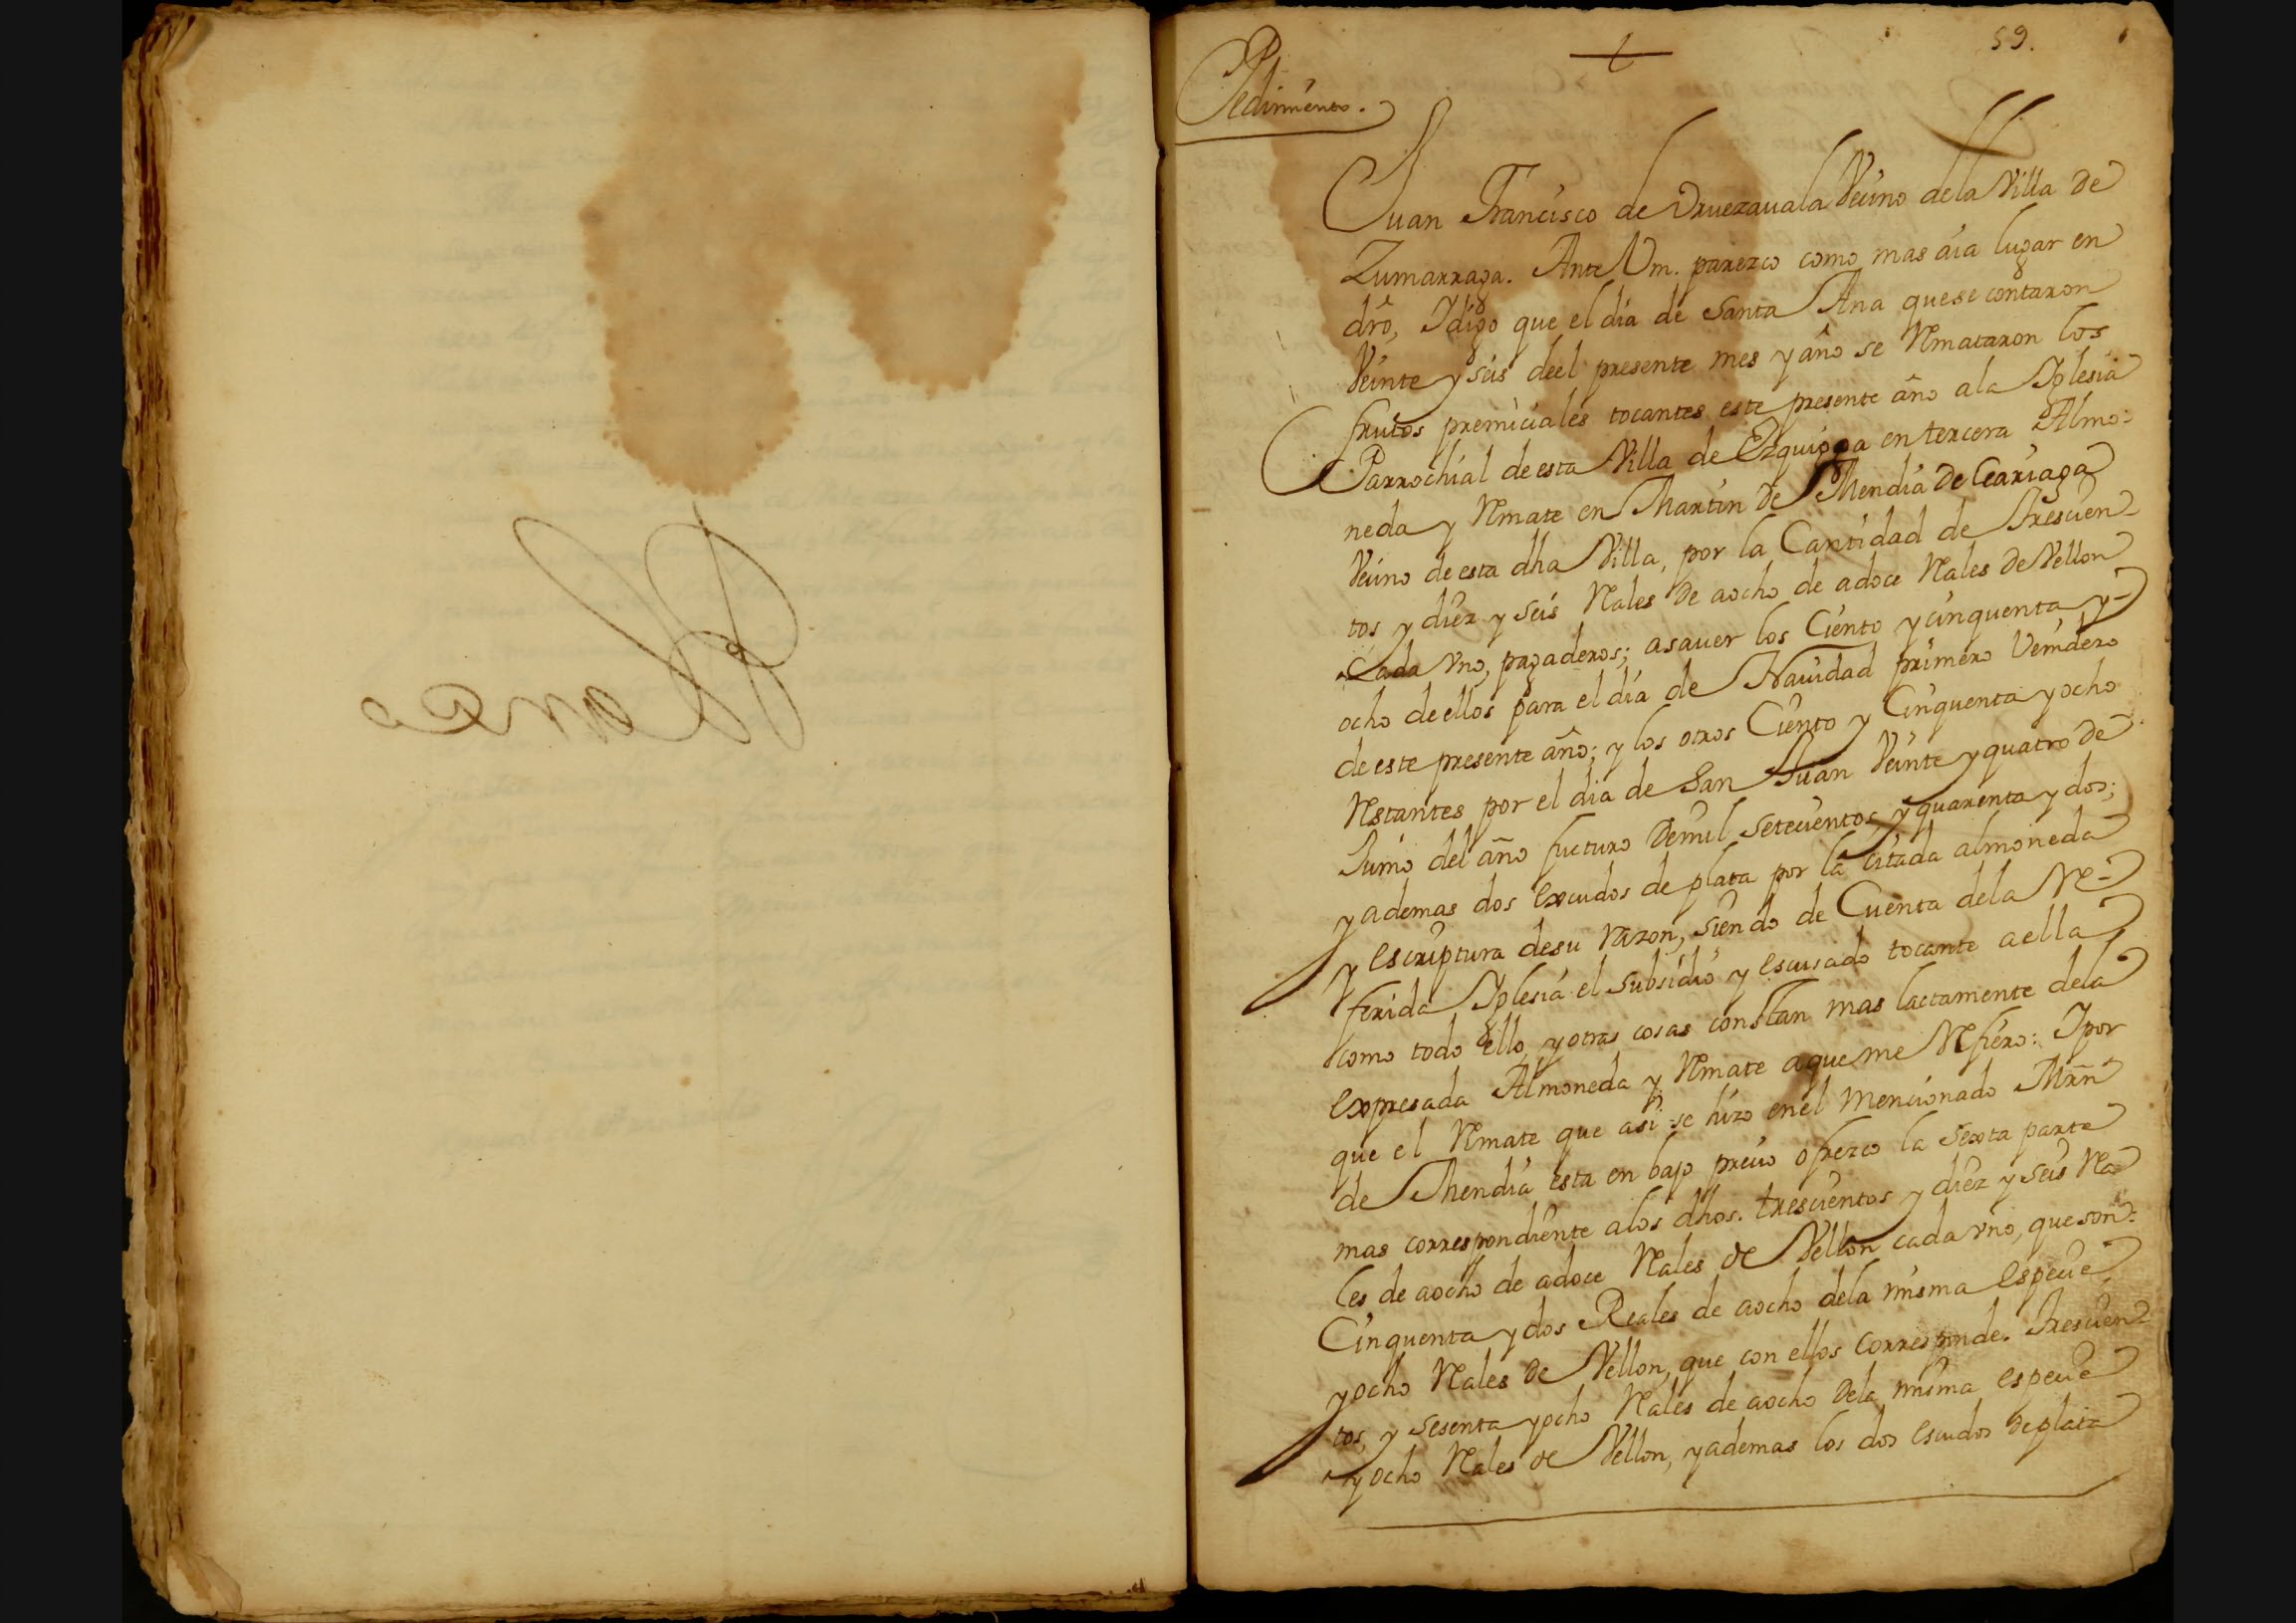 59.
Pedimiento.
Juan Francisco de Vruezauala Vecino dela Villa de
Zumarraga. Ante Vm. parezco como mas aia lugar en
dro, Idigo que el dia de Santa Ana quese contaron
Veinte y seis deel presente mes y año se Rmataron los
frutos premiciales tocantes este presente año ala Iglesia
Parrochial de esta Villa de Ezquioga en tercera Almo-
neda y Rmate en Martin de Mendia de Leariaga
Vecino de esta dha Villa, por la Cantidad de Trescien-
tos y diez y seis Rales de aocho de adoce Rales de Vellon
Cada vno, pagaderos; asauer los Ciento ycinquenta y-
ocho deellos para el dia de Nauidad primero Venidero
de este presente año; y los otros Ciento y Cinquenta yocho
Rstantes por el dia de San Juan Veinte yquatro de
Junio del año fucturo Demil setecientos, yquarenta y dos;
yademas dos excudos de plata por la citada almoneda
y escriptura desu razon, siendo de Cuenta dela Re-
ferida Iglesia el subsidio y escusado tocante aella
como todo ello yotras cosas constan mas lactamente dela
expresada Almoneda y Rmate aqueme Refiero: Ipor
que el Rmate que asi se hizo enel mencionado Mrñ
de Mendia esta en bajo precio ofrezco la sexta parte
mas correspondiente alos dhos. trescientos y diez y seis Ra-
les de aocho de adoce Rales de Vellon cada vno, queson:
Cinquenta ydos Reales de aocho dela misma especie
yocho Rales de Vellon, que con ellos corresponde. Trescien-
tos, y sesenta yocho Rales de aocho dela misma especie
y ocho Rales de Vellon, yademas los dos escudos deplata